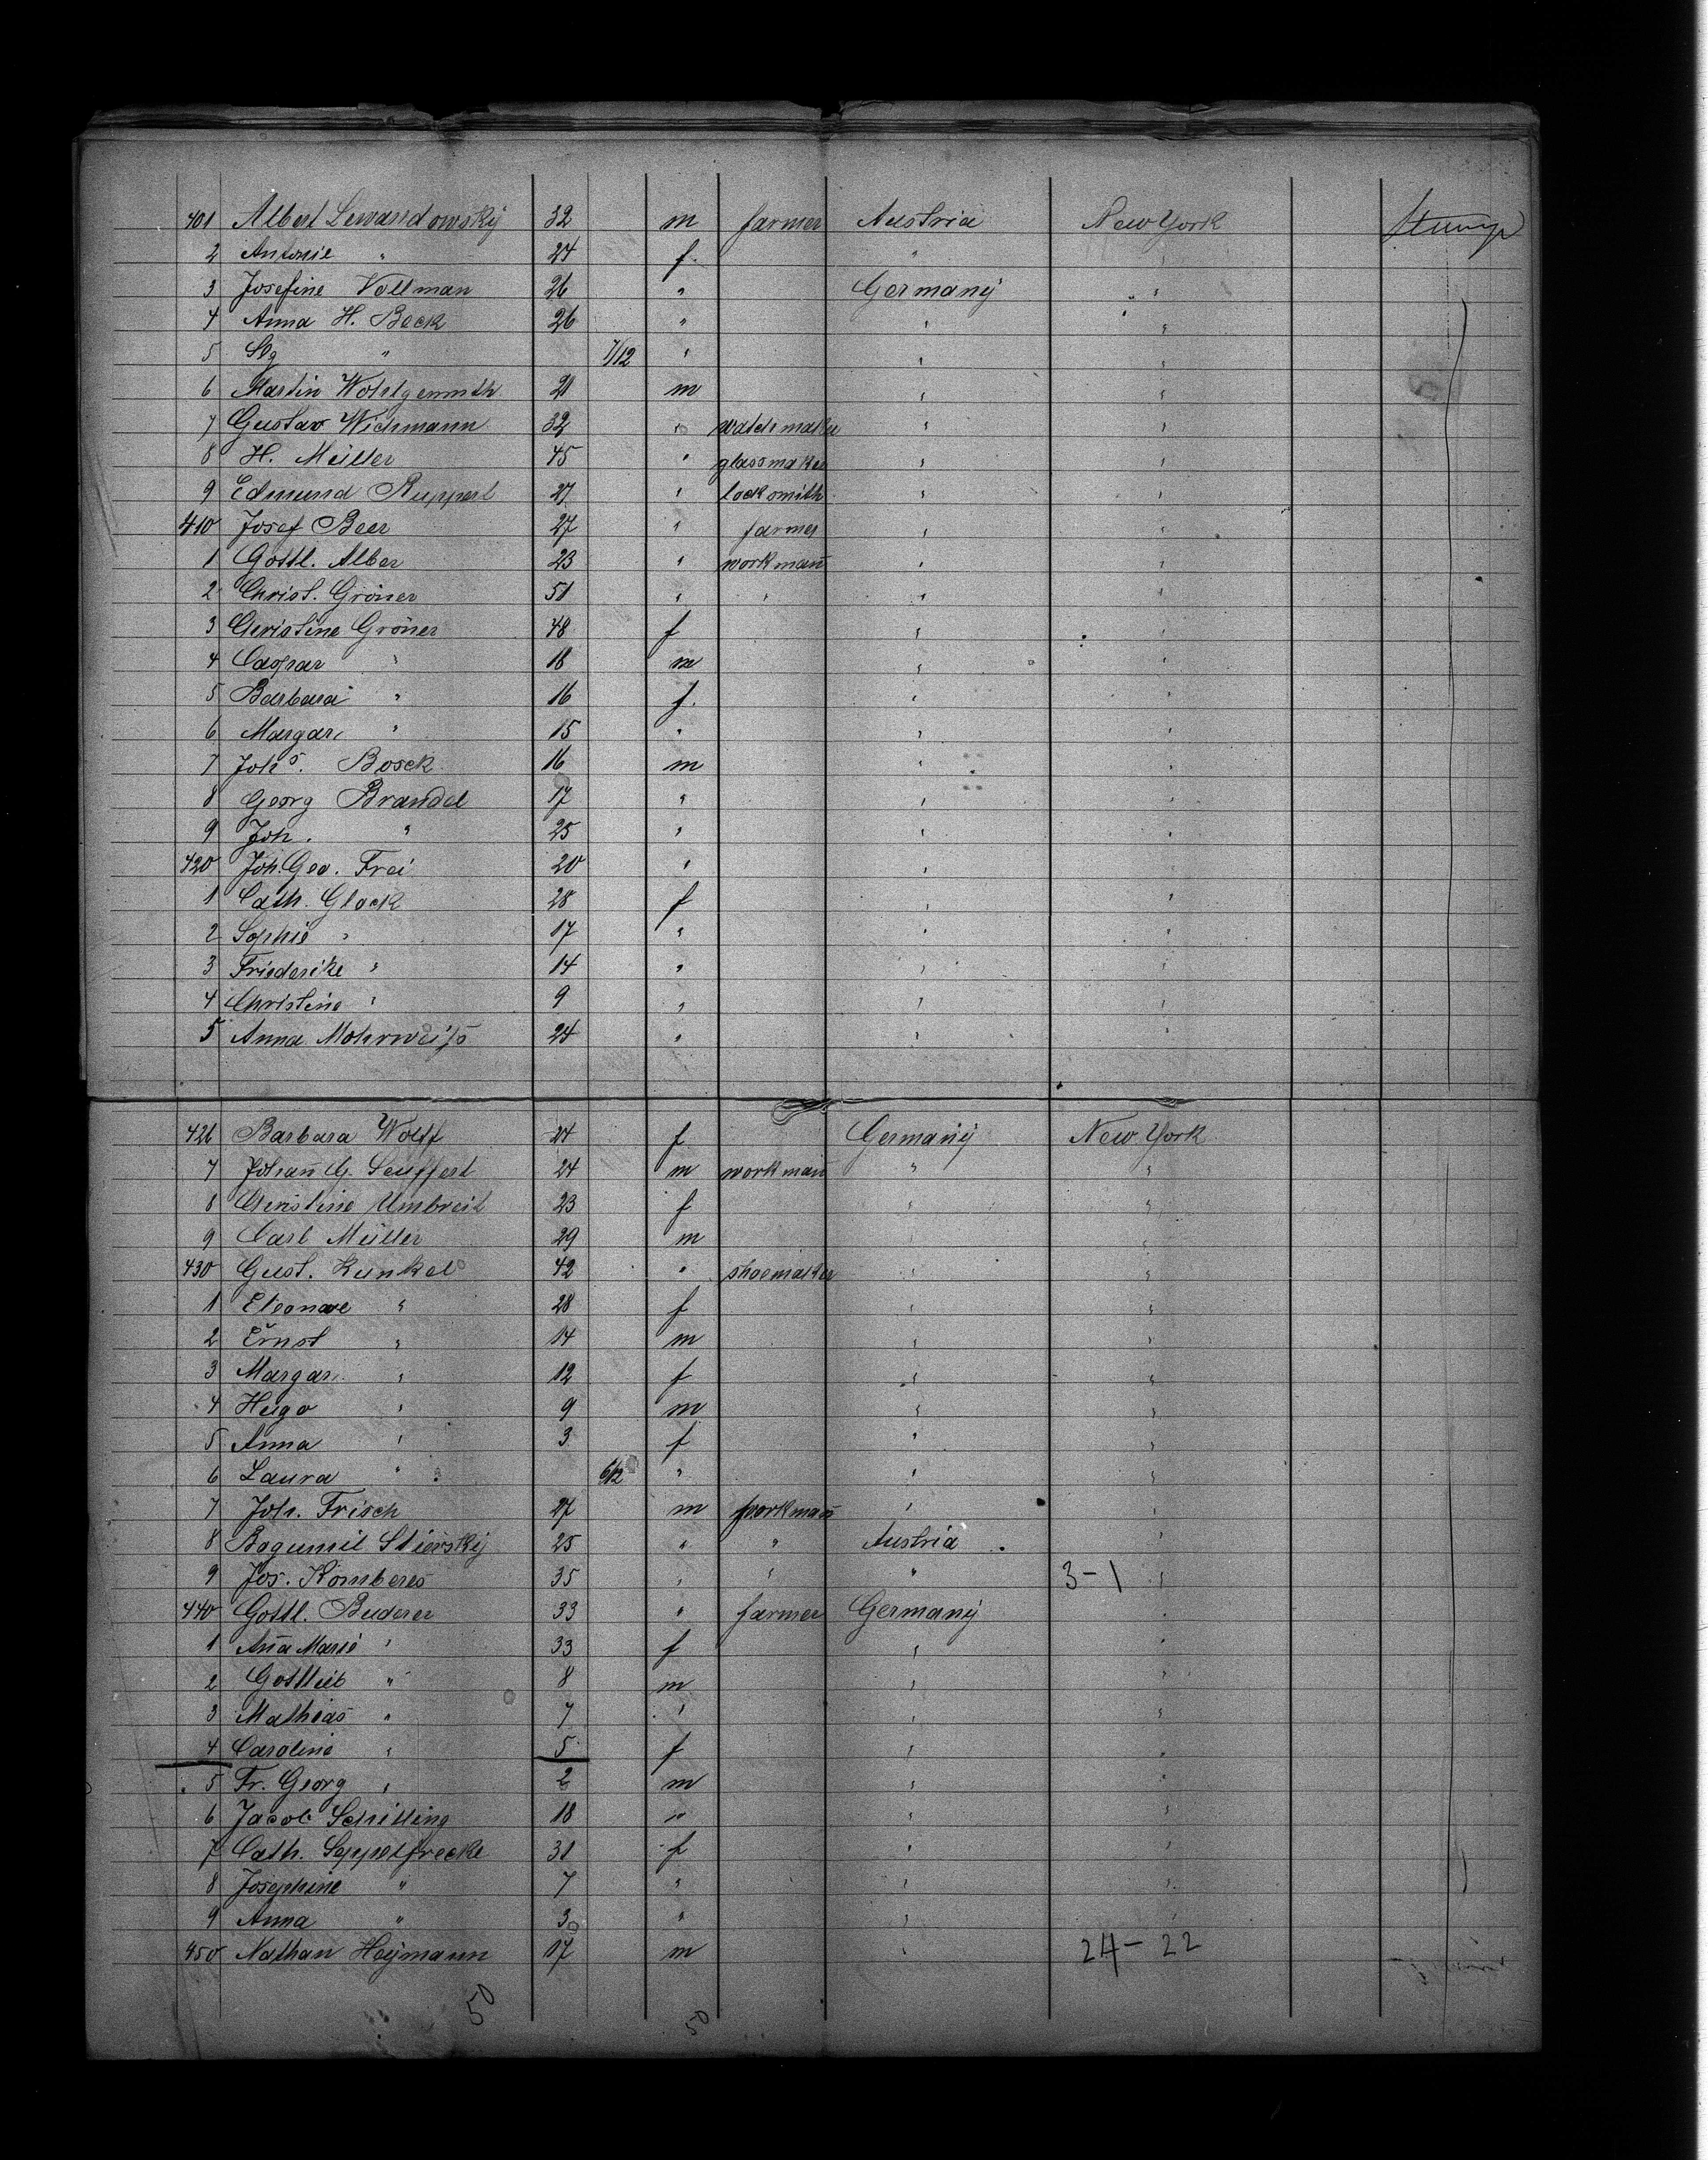 401 Albert Lewandowsky 32 m farmer Austria New York
2 Antonie " 24 f. " "
3 Josefine Vollman 26 " Germany "
4 Anna H. Beck 26 " " "
5 " 7/12 " " "
6 Martin Wohlgemuth 21 m " "
7 Gustav Wichmann 32 " watchmaker " "
8 H. Müller 45 " glassmaker " "
9 Edmund Ruppert 27 " locksmith " "
410 Josef Beer 27 " farmer " "
1 Gottl. Alber 23 " workmañ " "
2 Christ. Gröner 51 " " " "
3 Christine Gröner 48 f " "
4 Caspar " 18 m " "
5 Barbara " 16 f. " "
6 Margar. " 15 " " "
7 Johs. Bosck 16 m " "
8 Georg Brandel 17 " " "
9 Joh. " 25 " " "
420 Joh. Geo. Frei 20 " " "
1 Cath. Glock 28 f " "
2 Sophie " 17 " " "
3 Friederike " 14 " " "
4 Christine " 9 " " "
5 Anna Mohrweiß 24 " " "
426 Barbara Wolff 24 f Germany New York
7 Johañ G. Seuffert 24 m workmañ " "
8 Christine Umbreit 23 f " "
9 Carl Müller 29 m " "
430 Gust. Kunkel 42 " shoemaker " "
1 Eleonore " 28 f " "
2 Ernst " 14 m " "
3 Margar. " 12 f " "
4 Hugo " 9 m " "
5 Anna " 3 f " "
6 Laura " 6/12 " " "
7 Joh. Frisch 27 m workmañ " "
8 Bogumil 25 " " Austria "
9 Jos. 35 " " " 3-1 "
440 Gottl. Buderer 33 " farmer Germany "
1 Aña Marie " 33 f " "
2 Gottlieb " 8 m " "
3 Mathias " 7 " " "
4 Caroline " 5 f " "
5 Fr. Georg " 2 m " "
6 Jacob Schilling 18 " " "
7 Cath. 31 f " "
8 Josephine " 7 " " "
9 Anna " 3 " " "
450 Nathan Heymann 17 m " 24-22
50 50